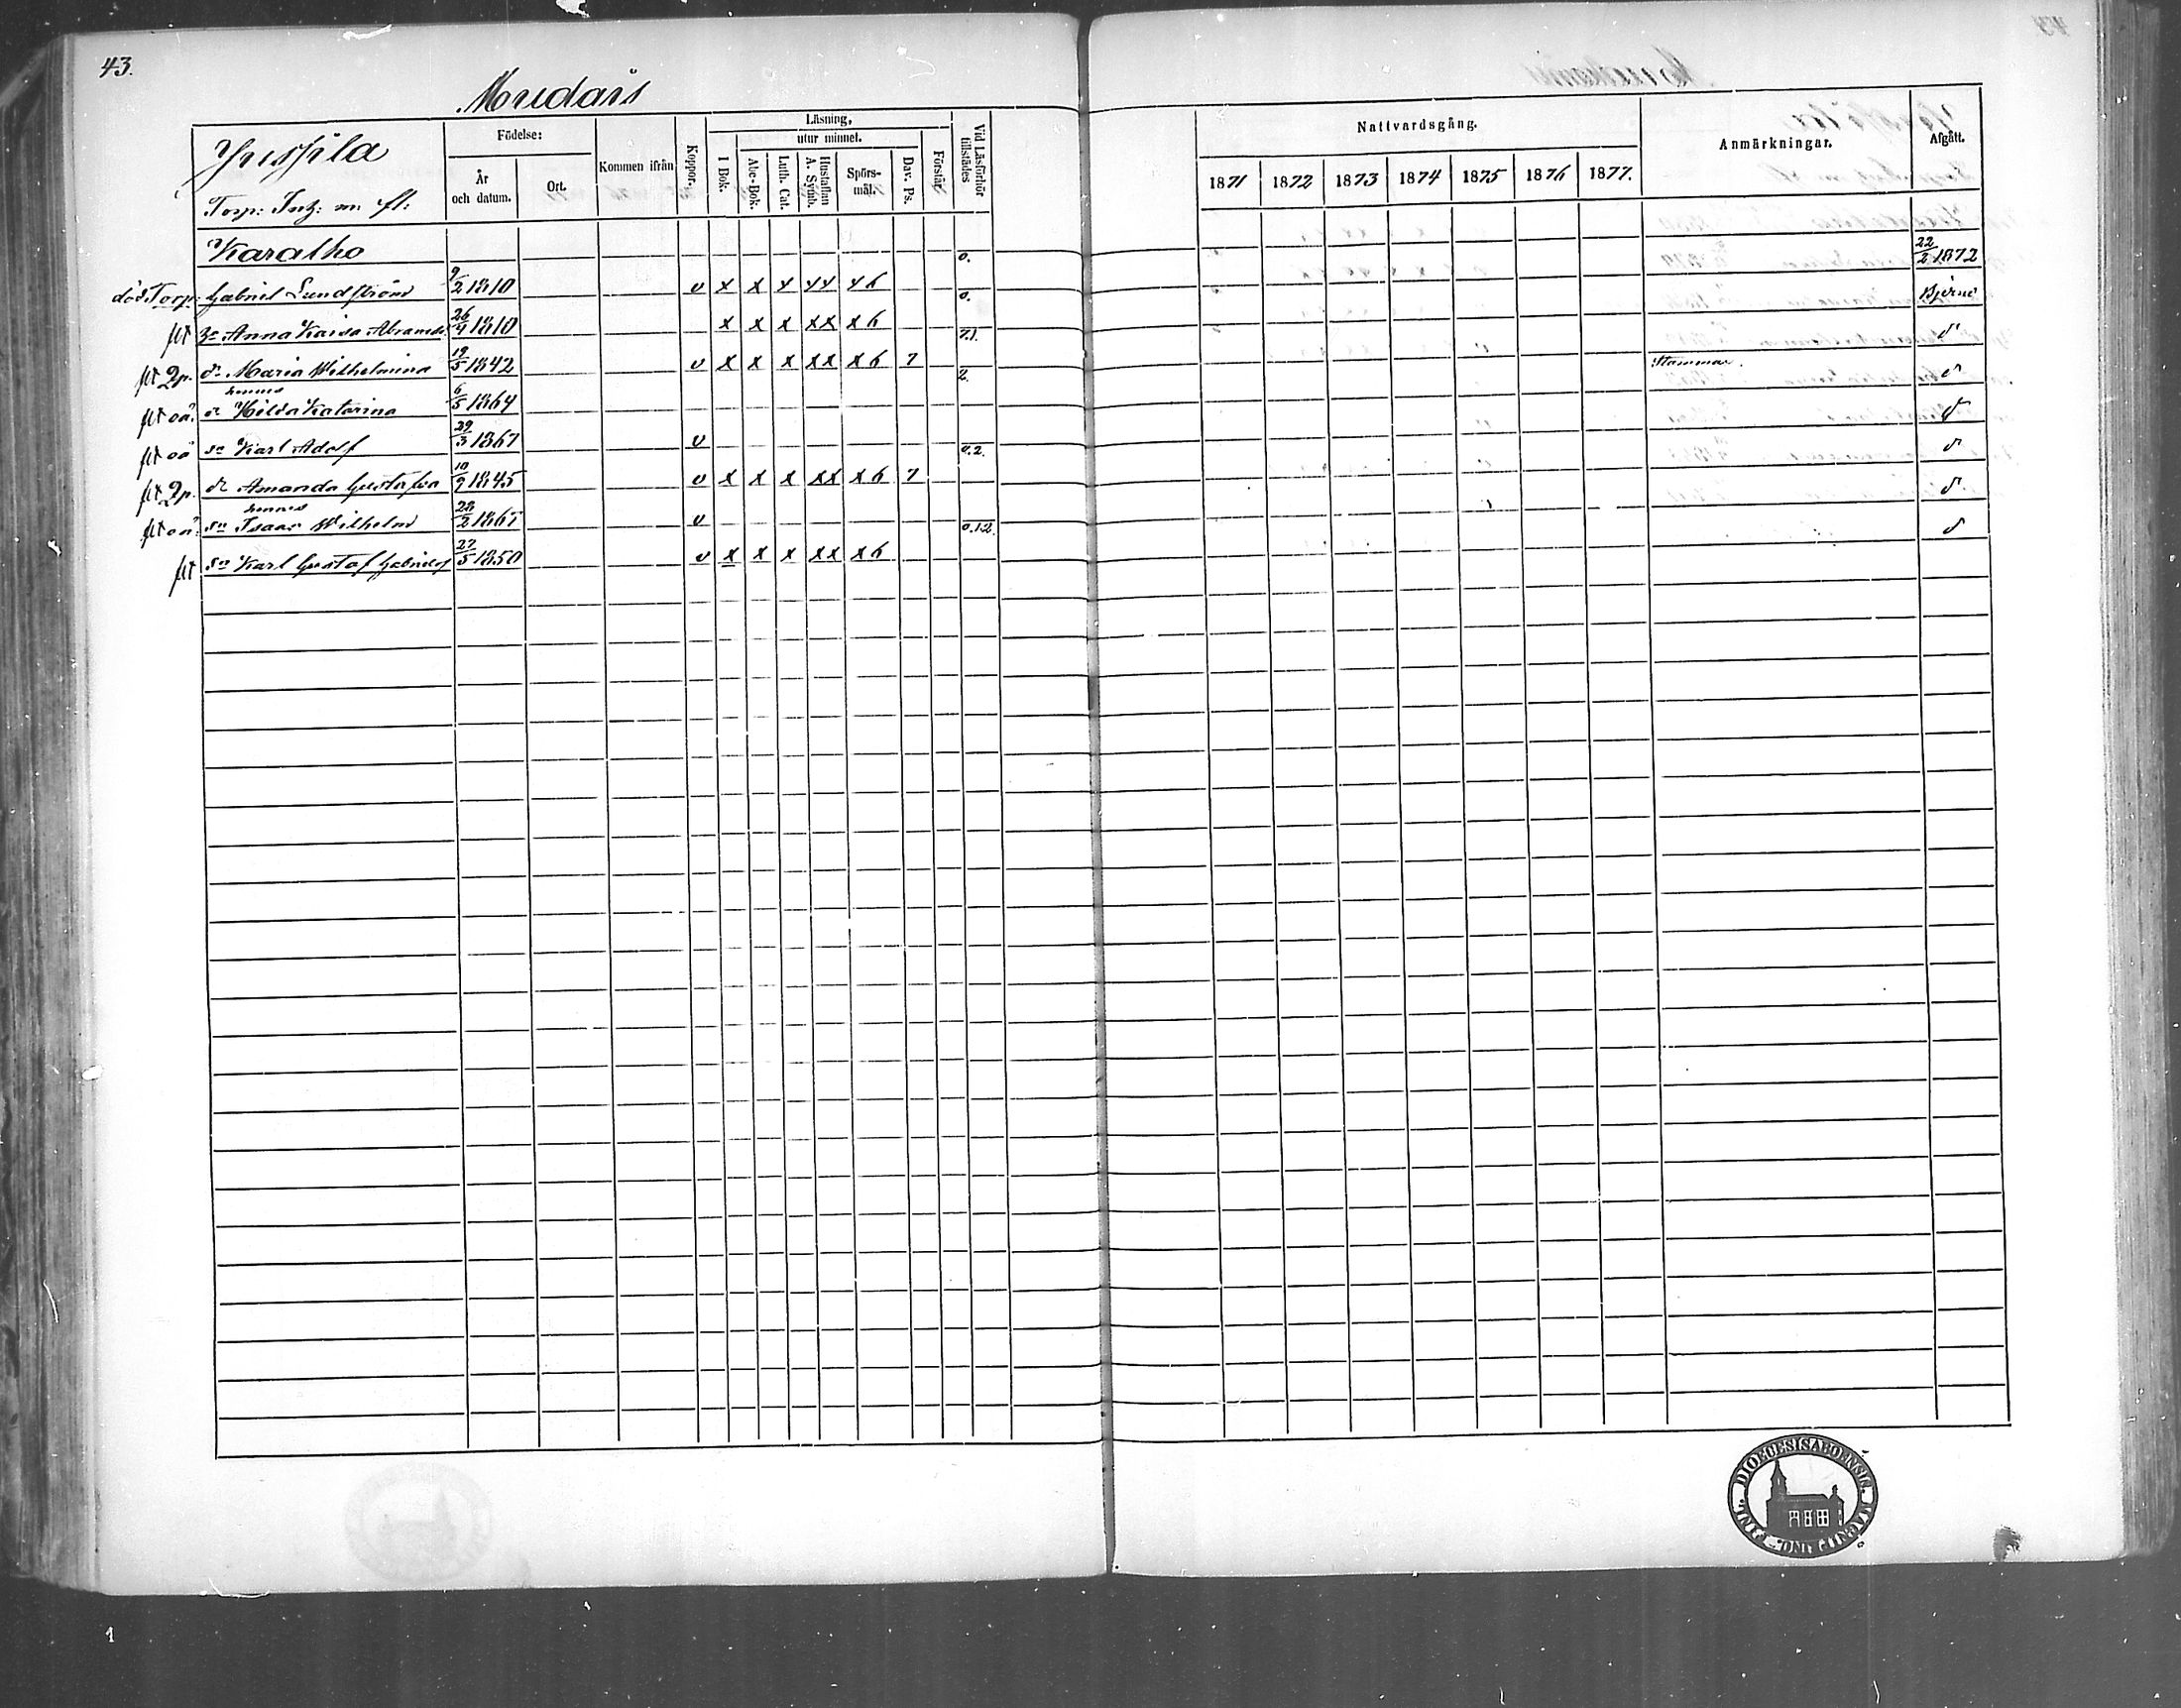 43.
Muedais
Yrispila
Torp: Inh: m. fl:
Födelse:
År och datum.
Ort.
Kommen ifrån
Koppor.
Läsning,
utur minnet.
I Bok.
Abc-Bok.
Luth. Cat.
Hustaflan A. Symb.
Spörs-mål.
Dav. Ps.
Förstår
Vid Läsförhör tillstädes
Nattvardsgång.
1871 1872 1873 1874 1875 1876 1877.
Anmärkningar.
Afgått.
Karalho
död Torp: Gabriel Lundström 9/2 1810 v x x x xx x6 0. 22/2 1872
flt Anna Kaisa Abramsd. 26/9 1810 x x x xx x6 0. Bjerno
flt 2p. dr Maria Wilhelmina 19/5 1842 v x x x xx x6 7 7.1. d
hennes
flt oä. dr Hilda Katarina 6/5 1864 2. Stammar. d
flt oä sn Karl Adolf 29/3 1867 v d
flt 2p. dr Amanda Gustafva 10/9 1845 v x x x xx x6 7 0.2. d
hennes
flt oä. sn Isaac Wilhelm 28/2 1867 v d
flt sn Karl Gustaf Gabrielsf 27/5 1850 v x x x xx x6 0.12. d
DIOECESIS ABOENSIS